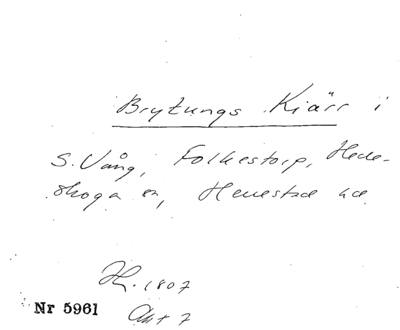 Brytungs Kiärr i
S. Vång, Folkestorp, Hede-
skoga en, Herrestad
H. 1807
Akt 7
Nr 5961